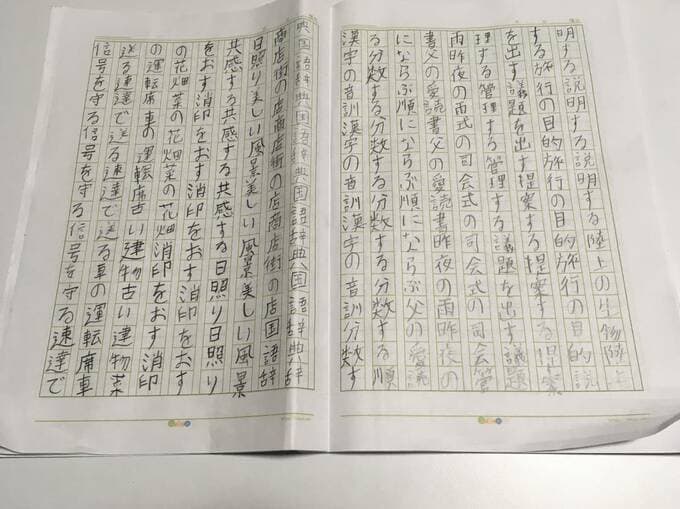 明する説明する説明する陸上の生物陸上
する旅行の目的旅行の目的旅行の目的説
を出す議題を出す提案する提案する提案
理する管理する管理する議題を出す議題
雨昨夜の雨式の司会式の司会式の司会管
書父の愛読書父の愛読書昨夜の雨昨夜の
にならぶ順にならぶ順にならぶ父の愛読
る分数する分数する分数する分数する順
漢字の音訓漢字の音訓漢字の音訓分数す
典国語辞典国語辞典国語辞典国語辞典辞
商店街の店商店街の店商店街の店国語辞
日照り美しい風景美しい風景美しい風景
共感する共感する共感する日照り日照り
をおす消印をおす消印をおす消印をおす
の花畑菜の花畑菜の花畑消印をおす消印
の運転席車の運転席古い建物古い建物菜
送る速達で送る速達で送る車の運転席車
信号を守る信号を守る信号を守る速達で